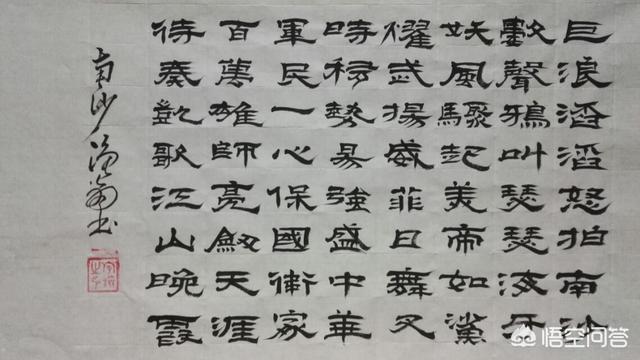 巨浪滔滔怒拍南沙
數聲鴉叫瑟瑟海牙
妖風驟起美帝如黨
燿武揚威菲日舞叉
時移勢易強盛中華
軍民一心保國衛家
百萬雄師亮劔天涯
待奏凱歌江山晚霞
南沙書
悟空问答